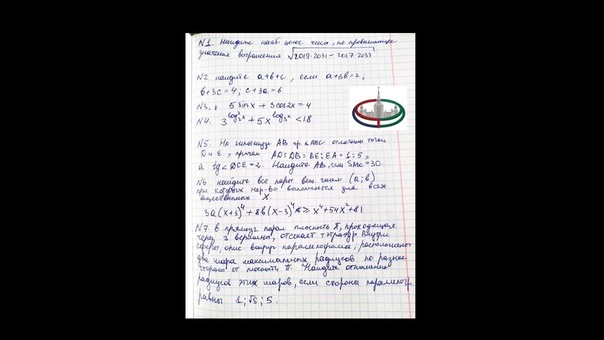 N1. Найдите наиб целое число, не превосходящее
значения выражения √2019·2031-2017·2033
N2 найдите a+b+c, если a+3b=2,
b+3c=4; c+3a=6
N3. 5 sin x + 3 cos 2x = 4
N4. 3^log₃²x + 5x^log₃x < 18
N5. На гипотенузе AB пр △ABC отмечены точки
D и E, причем AD:DB = BE:EA = 1:5,
а tg<DCE=2. Найдите AB, если S△ABC=30.
N6 найдите все пары вещ. чисел (a;b)
при которых нер-во выполняется для всех
вещественных x.
3a(x+3)⁴ + 8b(x-3)⁴ ≥ x⁴+54x²+81
N7. В прямоуг. парал. плоскость П, проходящая
через 3 вершины, отсекает тетраэдр. Внутри
сферы, опис. вокруг параллелепипеда, расположены
два шара максимальных радиусов по разные
стороны от плоскости П. Найдите отношение
радиусов этих шаров, если стороны параллелеп.
равны 1; √3; 5.